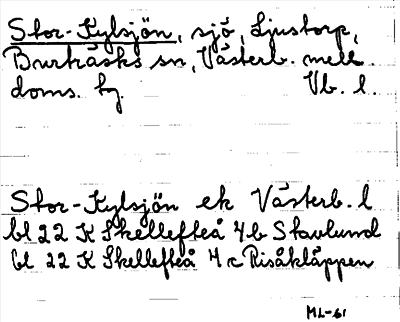 Stor-Kylsjön, sjö, Ljustorp,
Burträsks sn, Västerb. mell.
doms. hg. Vb. l.
Stor-Kylsjön ek Västerb. l
bl 22 K Skellefteå 4b Stavlund
bl 22 K Skellefteå 4c Risåkläppen
ML-61